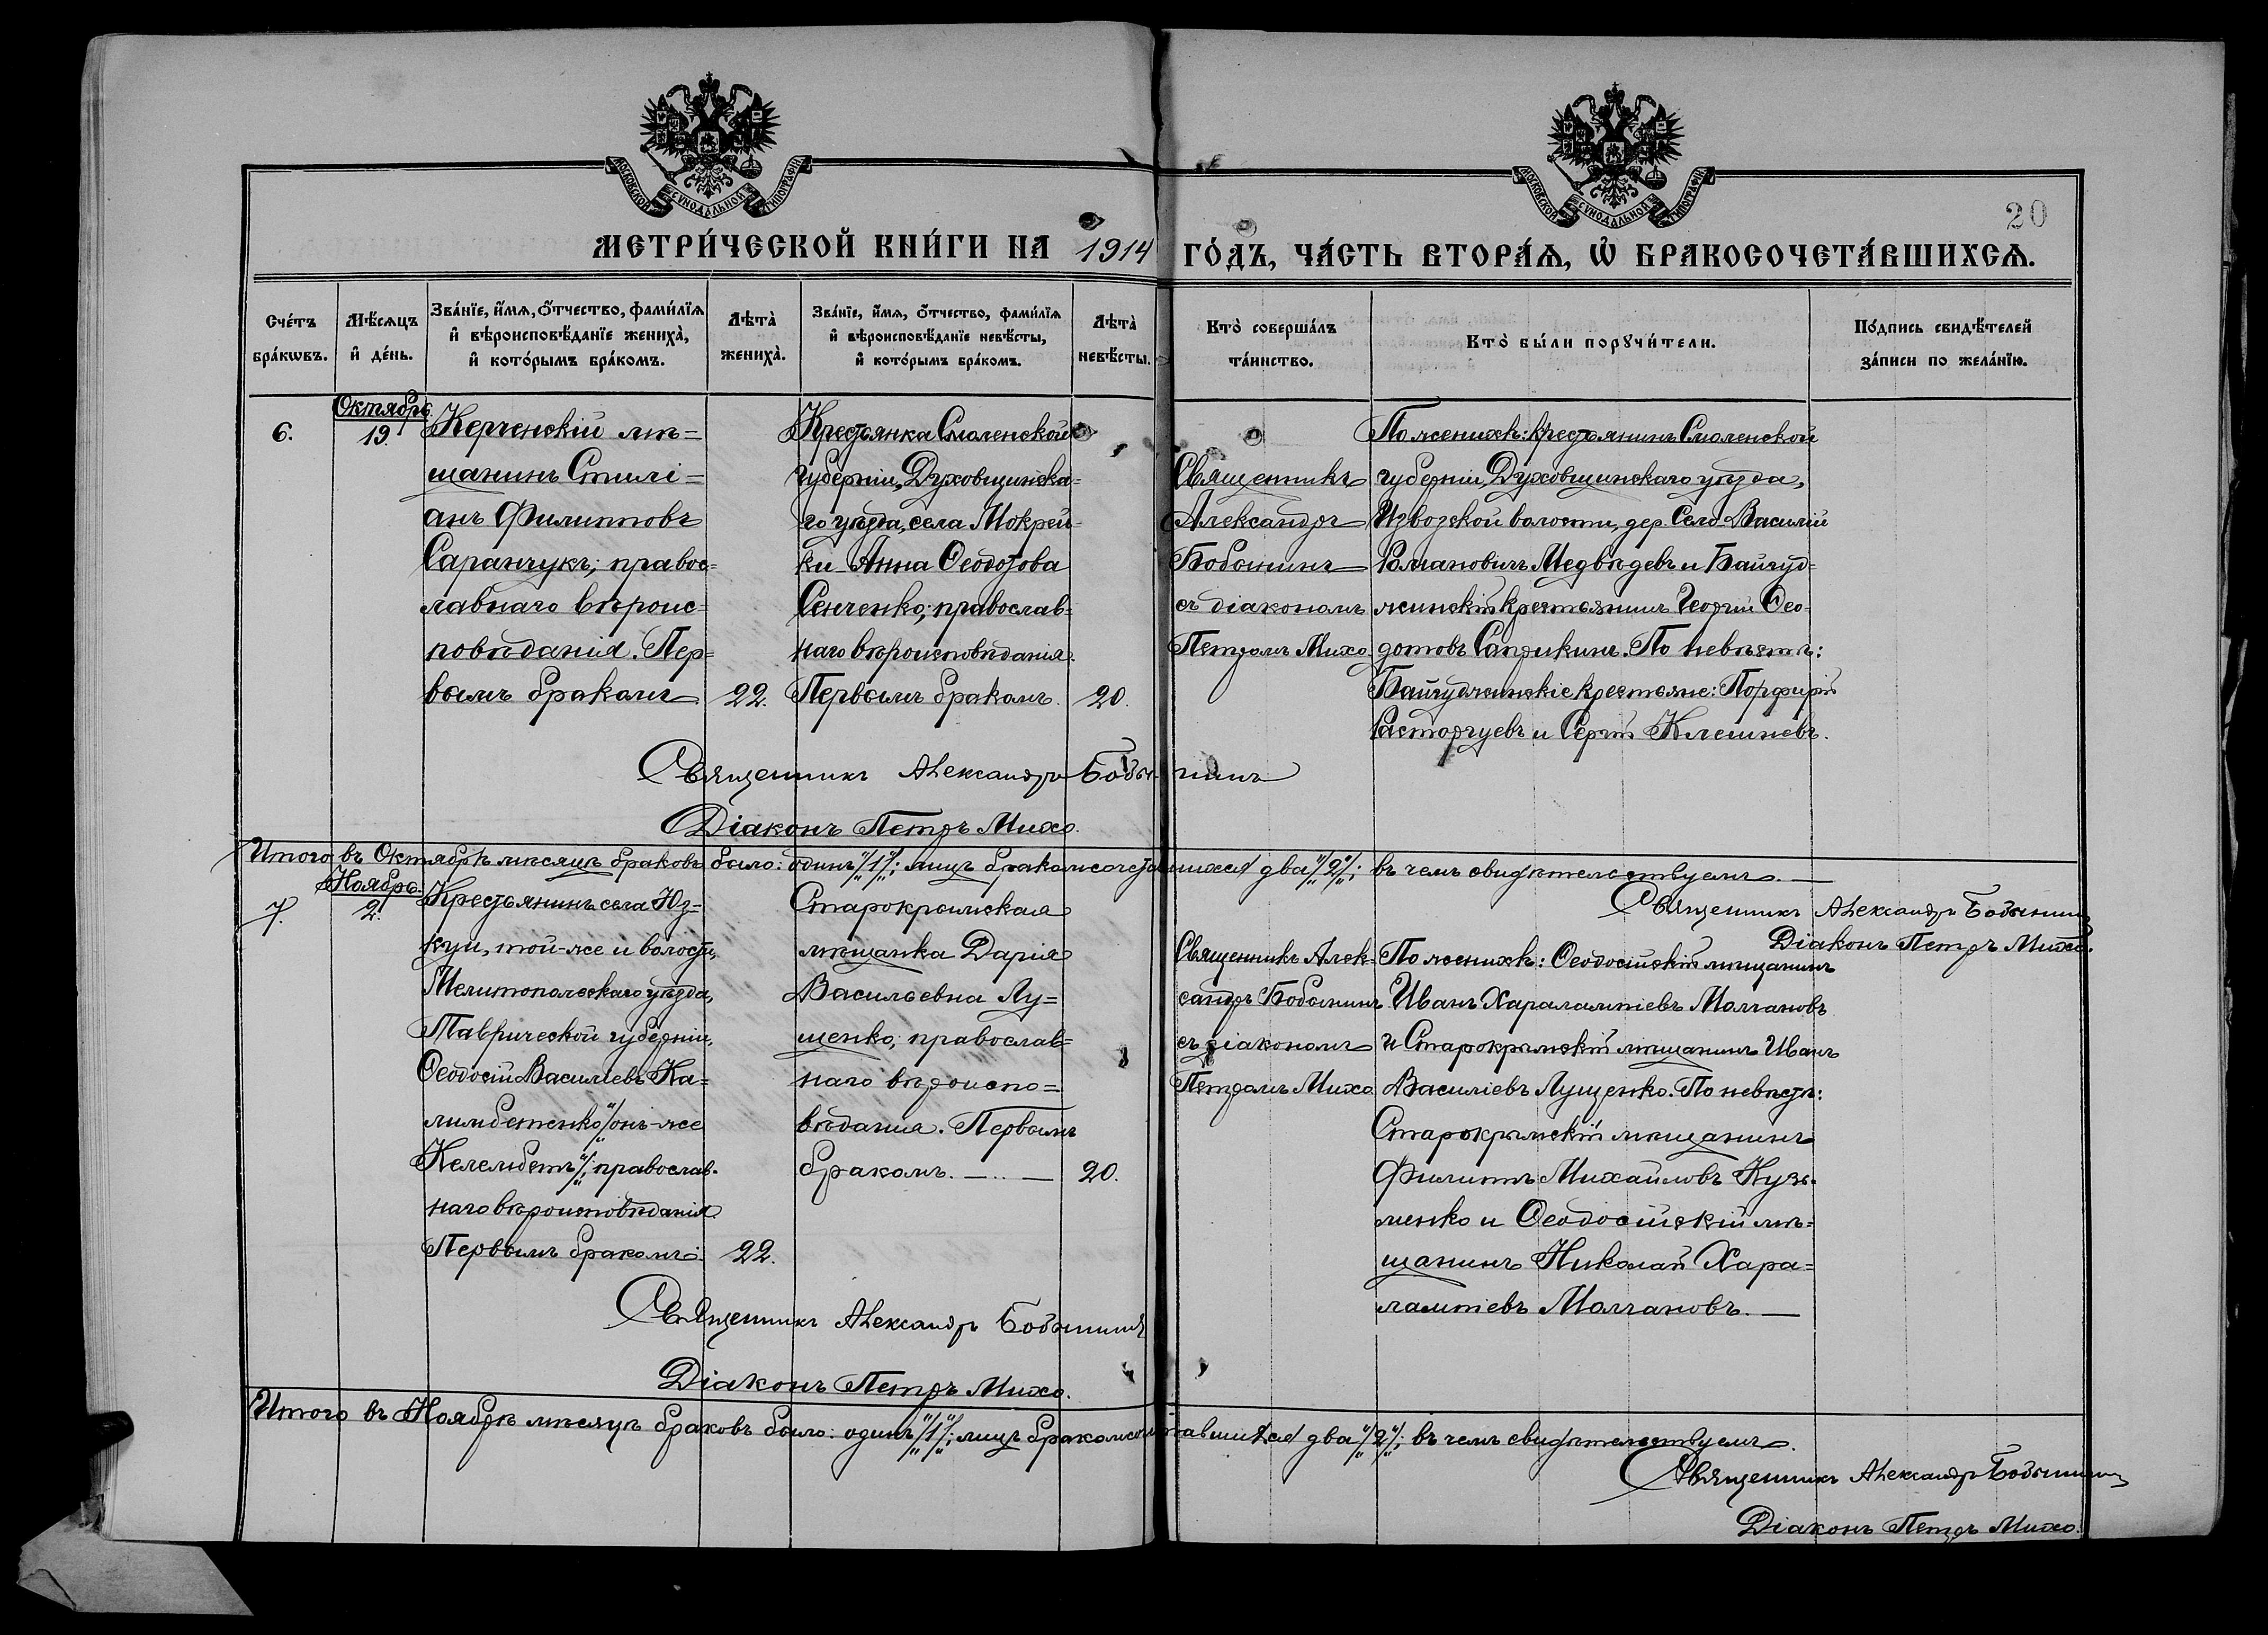 МОСКОВСКОЙ СУНОДАЛЬНОЙ ТИПОГРАФІИ
МОСКОВСКОЙ СУНОДАЛЬНОЙ ТИПОГРАФІИ
20
МЕТРИ́ЧЕСКОЙ КНИ́ГИ НА 1914 ГО́ДЪ, ЧА́СТЬ ВТОРА́Ѧ, Ѽ БРАКОСОЧЕТА́ВШИХСѦ.
Сче́тъ бра́кωвъ.
Мѣ́сѧцъ и҆ де́нь.
Зва́нїе, и҆́мѧ, ѻ҆́тчество, фами́лїѧ и҆ вѣроисповѣ́данїе жениха̀, и҆ кото́рымъ бра́комъ.
Лѣта̀ жениха̀.
Зва́нїе, и҆́мѧ, ѻ҆́тчество, фами́лїѧ и҆ вѣроисповѣ́данїе невѣ́сты, и҆ кото́рымъ бра́комъ.
Лѣта̀ невѣ́сты.
Кто̀ соверша́лъ та́инство.
Кто̀ бы́ли порꙋчи́тели.
По́дпись свидѣ́телей за́писи по жела́нїю.
6.
Октябрь.
19.
Керченскій мѣ=
щанинъ Стилі=
анъ Филипповъ
Саранчукъ; правос=
лавнаго вѣроис=
повѣданія. Пер=
вымъ бракомъ
22.
Крестьянка Смоленской
губерніи, Духовщинска=
го уѣзда, села Мокрей=
ки Анна Ѳеодотова
Сенченко; православ=
наго вѣроисповѣданія.
Первымъ бракомъ.
20.
Священникъ
Александръ
Бобынинъ
съ діакономъ
Петромъ Михо
По женихѣ: крестьянинъ Смоленской
губерніи, Духовщинскаго уѣзда,
Изводской волости, дер. Село Василій
Романовичъ Медвѣдевъ и Байгуд=
жинскій крестьянинъ Георгій Ѳео=
дотовъ Сапрыкинъ. По невѣстѣ:
Байгуджинскіе крестьяне: Порфирій
Расторгуевъ и Сергій Клешневъ.
Священникъ Александръ Бобынинъ
Діаконъ Петръ Михо.
Итого въ Октябрѣ мѣсяцѣ браковъ было: одинъ "/1"/; лицъ бракомсочетавшихся два "/2"/; въ чемъ свидѣтельствуемъ.
Священникъ Александръ Бобынинъ
Діаконъ Петръ Михо.
7.
Ноябрь.
2.
Крестьянинъ села Юз=
куи, той-же и волости,
Мелитопольскаго уѣзда,
Таврической губерніи,
Ѳеодосій Василіевъ Ка=
лимбетенко "/онъ-же
Келембетъ"/; православ=
наго вѣроисповѣданія.
Первымъ бракомъ.
22.
Старокрымская
мѣщанка Дарія
Васильевна Лу=
щенко; православ=
наго вѣроиспо=
вѣданія. Первымъ
бракомъ.
20.
Священникъ Алек=
сандръ Бобынинъ
съ діакономъ
Петромъ Михо.
По женихѣ: Ѳеодосійскій мѣщанинъ
Иванъ Харалампіевъ Молчановъ
и Старокрымскій мѣщанинъ Иванъ
Василіевъ Лущенко. По невѣстѣ:
Старокрымскій мѣщанинъ
Филиппъ Михайловъ Кузь=
менко и Ѳеодосійскій мѣ=
щанинъ Николай Хара=
лампіевъ Молчановъ.
Священникъ Александръ Бобынинъ
Діаконъ Петръ Михо.
Итого въ Ноябрѣ мѣсяцѣ браковъ было: одинъ "/1"/; лицъ бракомсочетавшихся два "/2"/; въ чемъ свидѣтельствуемъ.
Священникъ Александръ Бобынинъ
Діаконъ Петръ Михо.